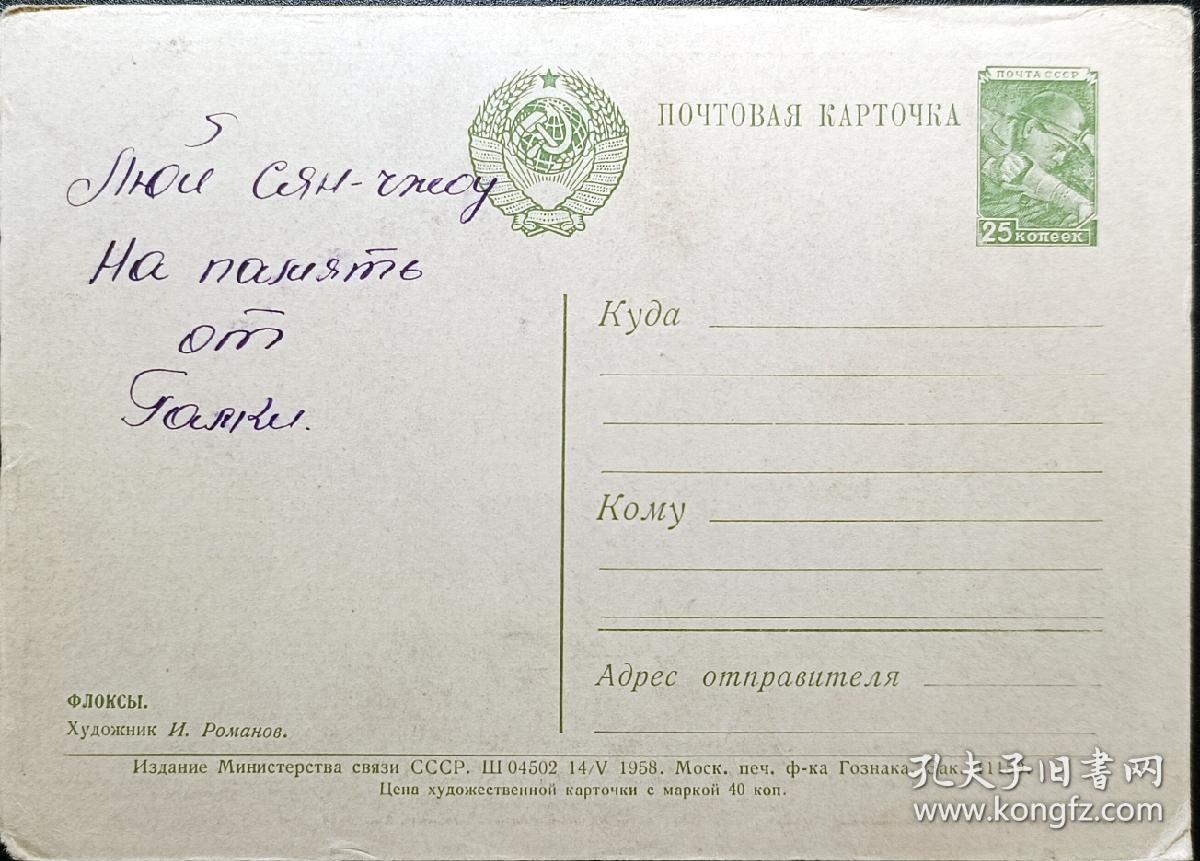 ПОЧТА СССР
25 копеек
ПОЧТОВАЯ КАРТОЧКА
Люй Сян-чжоу
На память
от
Галки.
Куда
Кому
Адрес отправителя
ФЛОКСЫ.
Художник И. Романов.
Издание Министерства связи СССР. Ш 04502 14/V 1958. Моск. печ. ф-ка Гознака.
Цена художественной карточки с маркой 40 коп.
孔夫子旧书网
www.kongfz.com